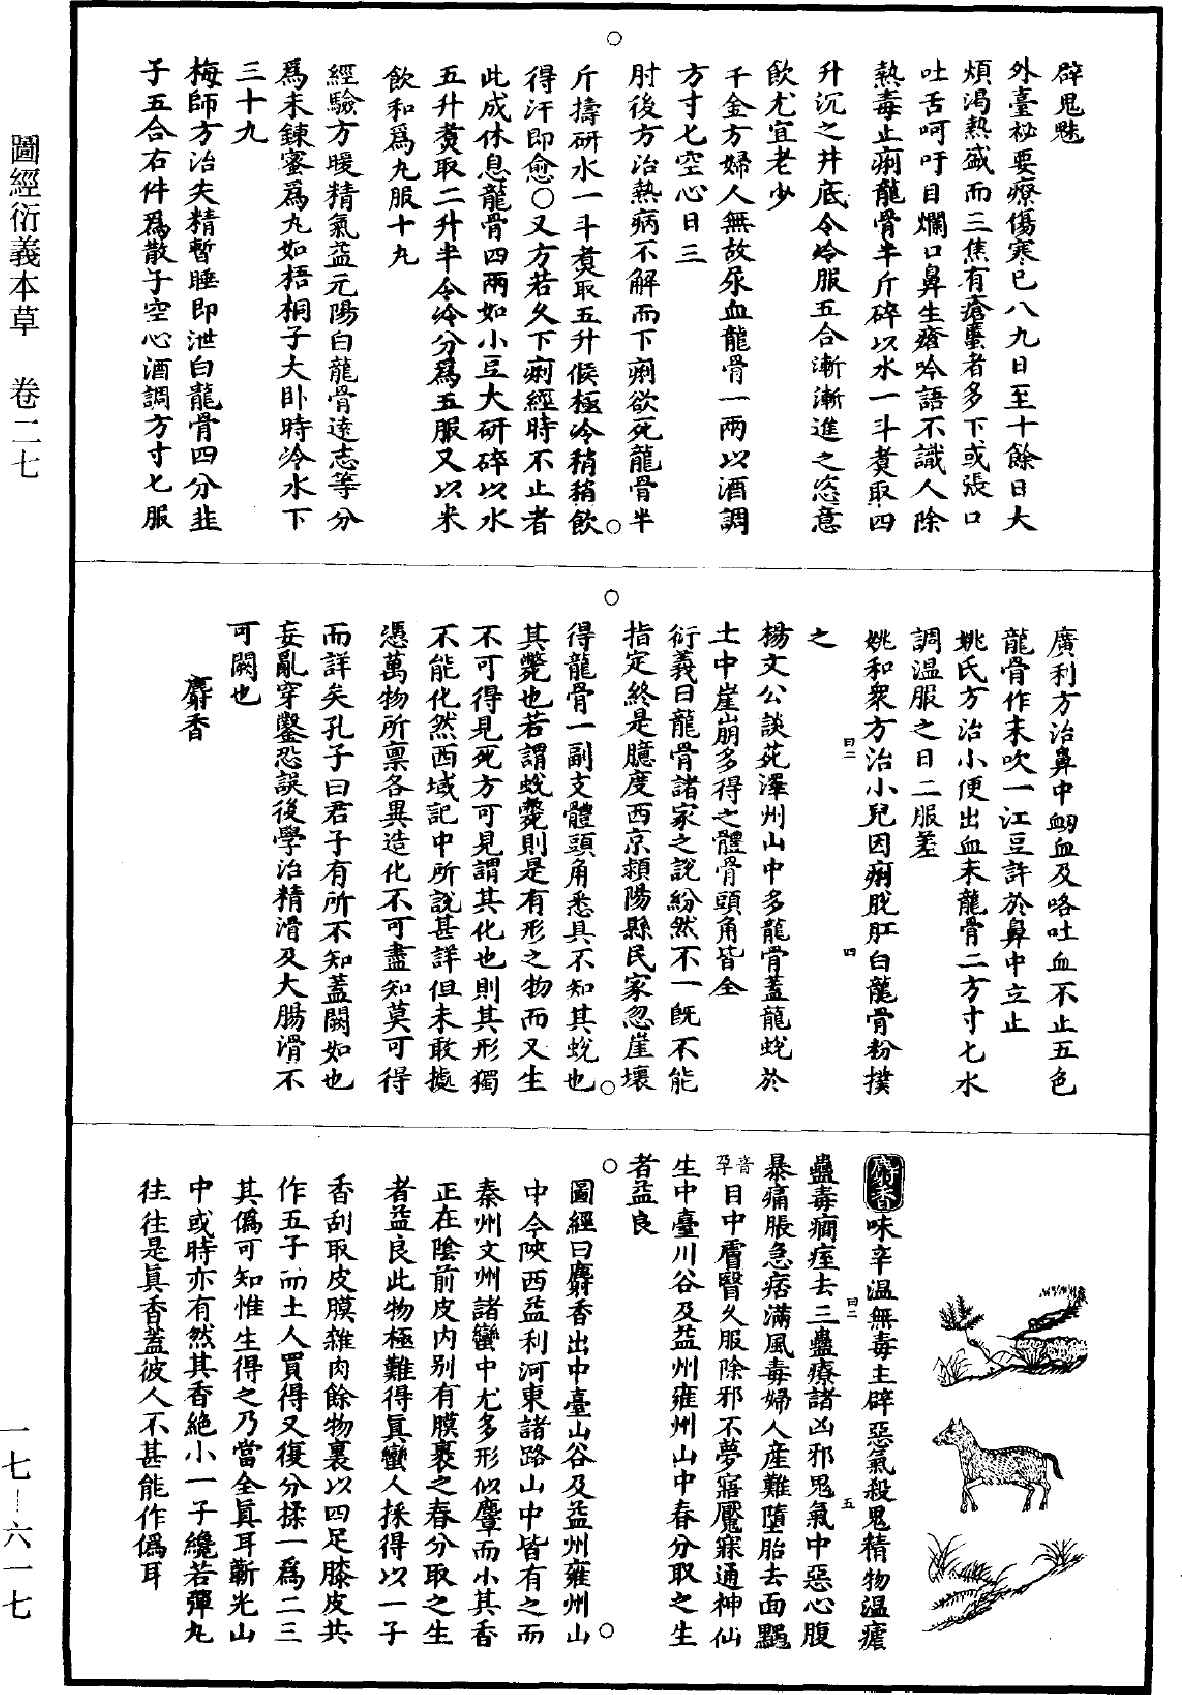 圖經衍義本草　卷二七
辟鬼魅
外臺祕要療傷寒已八九日至十餘日大
煩渴熱盛而三焦有瘡䘌者多下或張口
吐舌呵吁目爛口鼻生瘡吟語不識人除
熱毒止痢龍骨半斤碎以水一斗煑取四
升沉之井底令冷服五合漸漸進之恣意
飲尤宜老少
千金方婦人無故尿血龍骨一兩以酒調
方寸匕空心日三
肘後方治熱病不解而下痢欲死龍骨半
斤擣研水一斗煑取五升候極冷稍稍飲
得汗即愈○又方若久下痢經時不止者
此成休息龍骨四兩如小豆大研碎以水
五升煑取二升半令冷分爲五服又以米
飲和爲丸服十丸
經驗方暖精氣益元陽白龍骨遠志等分
爲末鍊蜜爲丸如梧桐子大卧時冷水下
三十丸
梅師方治失精暫睡即泄白龍骨四分韭
子五合右件爲散子空心酒調方寸匕服
廣利方治鼻中衂血及咯吐血不止五色
龍骨作末吹一江豆許於鼻中立止
姚氏方治小便出血末龍骨二方寸匕水
調温服之日二服差
姚和衆方治小兒因痢脫肛白龍骨粉撲
之
曰二　四
楊文公談苑澤州山中多龍骨蓋龍蛻於
土中崖崩多得之體骨頭角皆全
衍義曰龍骨諸家之說紛然不一旣不能
指定終是臆度西京潁陽縣民家忽崖壞
得龍骨一副支體頭角悉具不知其蛻也
其斃也若謂蛻斃則是有形之物而又生
不可得見死方可見謂其化也則其形獨
不能化然西域記中所說甚詳但未敢據
憑萬物所稟各異造化不可盡知莫可得
而詳矣孔子曰君子有所不知蓋闕如也
妄亂穿鑿恐誤後學治精滑及大腸滑不
可闕也
麝香
麝香味辛温無毒主辟惡氣殺鬼精物温瘧
蠱毒癇痓去三蠱療諸凶邪鬼氣中惡心腹
曰二　五
暴痛脹急痞滿風毒婦人産難墮胎去面䵟
音孕目中膚瞖久服除邪不夢寤魘寐通神仙
生中臺川谷及益州雍州山中春分取之生
者益良
圖經曰麝香出中臺山谷及益州雍州山
中今陝西益利河東諸路山中皆有之而
秦州文州諸蠻中尤多形似麞而小其香
正在陰前皮內别有膜裹之春分取之生
者益良此物極難得真蠻人採得以一子
香刮取皮膜雜肉餘物裹以四足膝皮共
作五子而土人買得又復分揉一爲二三
其僞可知惟生得之乃當全真耳蘄光山
中或時亦有然其香絶小一子纔若彈丸
往往是真香蓋彼人不甚能作僞耳
一七—六一七